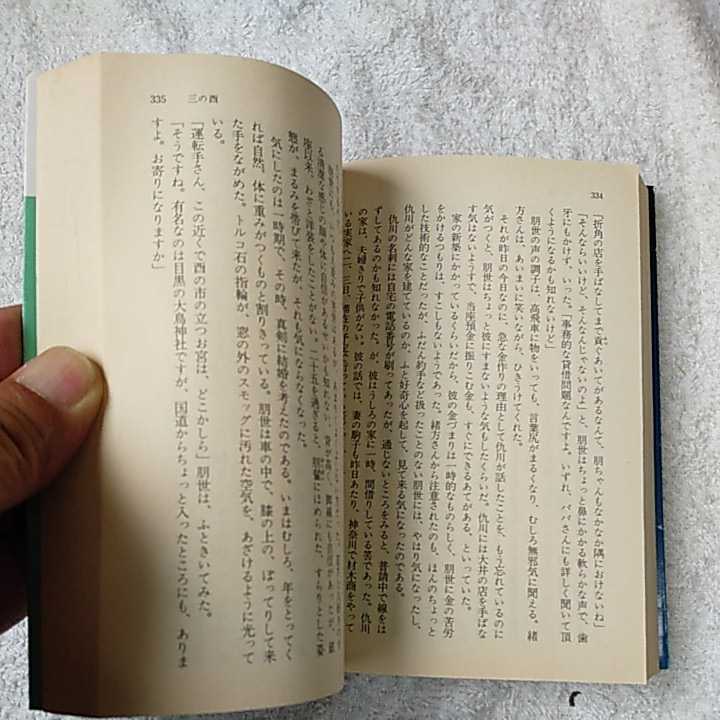 334
「折角の店を手ばなしてまで貢ぐあいてがあるなんて、朋ちゃんもなかなか隅におけないね」
「そんならいいけど、そんなんじゃないのよ」と、朋世はちょっと鼻にかかる軟らかな声で、歯
牙にもかけず、いった。「事務的な貸借問題なんですよ。いずれ、パパさんにも詳しく聞いて頂
くようになるかも知れないけど」
朋世の声の調子は、高飛車に物をいっても、言葉尻がまるくなり、むしろ無邪気に聞える。緒
方さんは、あいまいに笑いながら、ひきうけてくれた。
それが昨日の今日なのに、急な金作りの理由として仇川が話したことを、もう忘れているのに
気がつくと、朋世はちょっと彼にすまないような気もしたくらいだ。仇川には大井の店を手ばな
す気はないらしい。そうすれば、当座預金に振りこむ金も、すぐにできるあてがある、といって
家の新築にかかっているくらいだから、彼の金づまりは一時的なものらしく、朋世に金の苦労
をかけるつもりは、すこしもないようであった。緒方さんから注意されたのも、ほんのちょっと
した技術的なことだったが、ふだん約手など扱ったことのない朋世には、やはり気になったし、
仇川がどんな家を建てているのか、ふと好奇心を起して、見て来る気になったのである。
仇川の名刺には自宅の電話番号が刷ってあったが、通じないところをみると、普請中で線をは
ずしてあるのかも知れなかった。が、彼はうしろの家に一時、間借りしている筈であった。仇川
の家は、夫婦きりで子供がない。彼の話では、妻の駒子も昨日あたり、神奈川で材木商をやって
335 三の酉
座以来、わざと洋装をしたことがない。二十五を過ぎると、朋輩にはめられた、すらりとした姿
態が、まるみを帯びて来たが、それも気にならなくなった。
気にしたのは一時期で、その時、真剣に結婚を考えたのである。いまはむしろ、年をとってく
れば自然、体に重みがつくものと割りきっている。朋世は車の中で、膝の上の、ぼってりして来
た手をながめた。トルコ石の指輪が、窓の外のスモッグに汚れた空気を、あざけるように光って
いる。
「運転手さん、この近くで酉の市の立つお宮は、どこかしら」朋世は、ふときいてみた。
「そうですね。有名なのは目黒の大鳥神社ですが、国道からちょっと入ったところにも、ありま
すよ。お寄りになりますか」